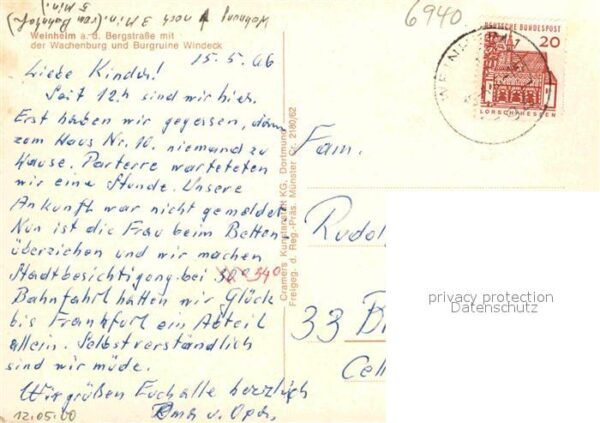 Wohnung noch 3 Min. vom Bahnhof
5 Min.
6940
Weinheim a. d. Bergstraße mit
der Wachenburg und Burgruine Windeck
15. 5. 66
Liebe Kinder!
Seit 12h sind wir hier.
Erst haben wir gegessen, dann
zom Haus Nr. 10. niemand zu
Hause. Parterre warteteten
wir eine Stunde. Unsere
Ankunft war nicht gemeldet
Nun ist die Frau beim Betten
überziehen und wir machen
Stadtbesichtigung bei 30° 340
Bahnfahrt hatten wir Glück
bis Frankfurt ein Abteil
allein. Selbstverständlich
sind wir müde.
Wir grüßen Euch alle herzlich
Oma u. Opa.
12.05.00
Cramers Kunstanstalt KG. Dortmund
Freigeg. d. Reg.-Präs. Münster Cr. 2180/62
DEUTSCHE BUNDESPOST
20
LORSCH/HESSEN
Fam.
Rudol
33 B
Cell
privacy protection
Datenschutz